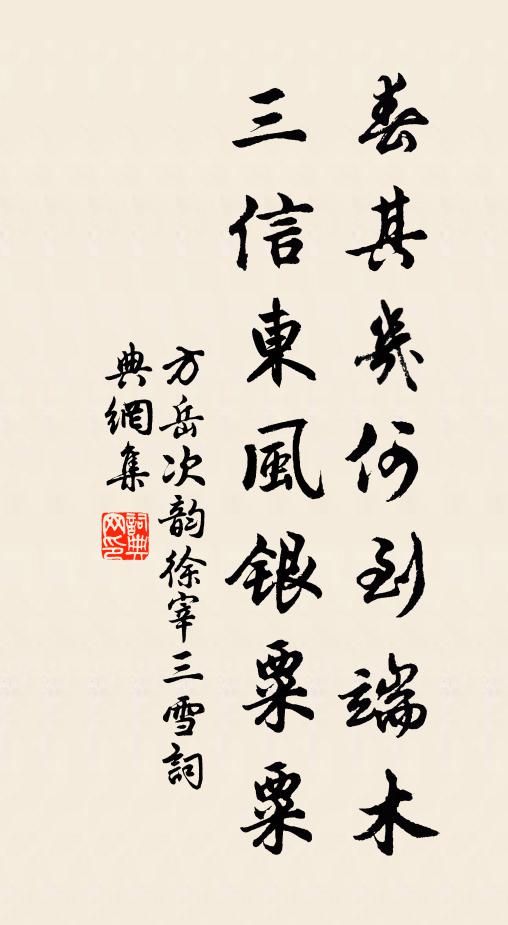 春其幾何到端木
三信東風銀粟粟
方岳次韵徐宰三雪詞
典網集
詞典網印